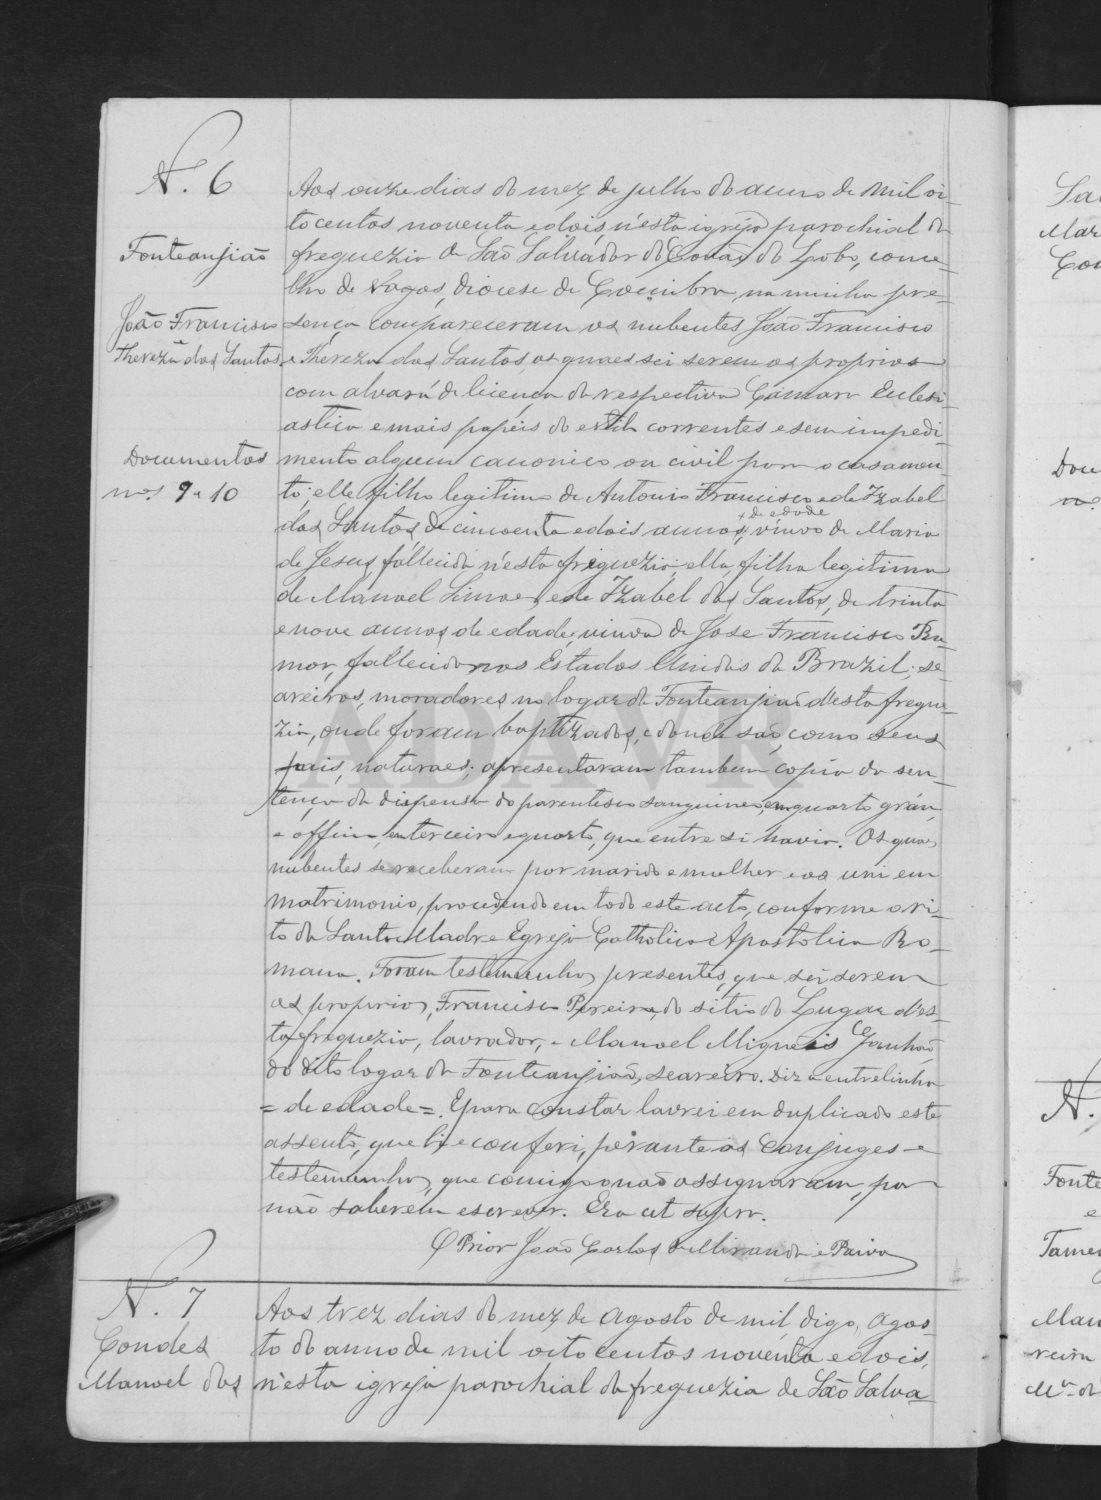 N. 6
Fonteanjião
João Francisco
e
Thereza dos Santos
Documentos
nos. 9 e 10
Aos onze dias do mez de julho do anno de mil oi-
tocentos noventa e dois, n'esta igreja parochial da
freguezia de São Salvador do Covão do Lobo, conce-
lho de Vagos, diocese de Coimbra, na minha pre-
sença compareceram os nubentes João Francisco
e Thereza dos Santos, os quaes sei serem os proprios
com alvará de licença da respectiva Camara Eclesi-
astica e mais papeis do estilo correntes e sem impedi-
mento algum canonico ou civil para o casamen-
to; elle filho legitimo de Antonio Francisco e de Izabel
dos Santos, de cincoenta e dois annos, + de edade viuvo de Maria
de Jesus, fallecida n'esta freguezia; ella, filha legitima
de Manoel Simoes, e de Izabel dos Santos, de trinta
e nove annos de edade, viuva de Jose Francisco Ru-
mor, fallecido nos Estados Unidos do Brazil; se-
areiros, moradores no logar da Fonteanjião d'esta fregue-
zia, onde foram baptizados, e donde são, como seus
pais, naturaes; apresentaram tambem copia da sen-
tença da dispensa do parentesco sanguineo, em quarto gráu,
e affim, em terceiro e quarto, que entre si havia. Os quaes
nubentes se receberam por marido e mulher e os uni em
matrimonio, procedendo em todo este acto, conforme o ri-
to da Santa Madre Egreja Catholica Apostolica Ro-
mana. Foram testemunhas presentes, que sei serem
os proprios, Francisco Pereira, do sitio do Lugar d'es-
ta freguezia, lavrador, e Manoel Migueis Ganhão
do dito logar da Fonteanjião, seareiro. Diz a entrelinha
= de edade =. E para constar lavrei em duplicado este
assento, que li e conferi, perante os conjuges e
testemunhas, que comigo não assignaram, por
não saberem escrever. Era ut supra.
O Prior João Carlos de Miranda e Paiva
N. 7
Condes
Manoel dos
Aos trez dias do mez de agosto de mil, digo, agos-
to do anno de mil oitocentos noventa e dois,
n'esta igreja parochial da freguezia de São Salva-
ADAVR